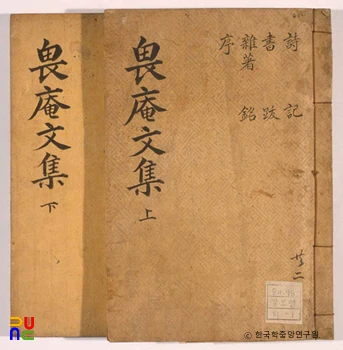 詩 記
書 跋
雜著 銘
序
畏庵文集 上
共二
畏庵文集 下
ⓒ 한국학중앙연구원